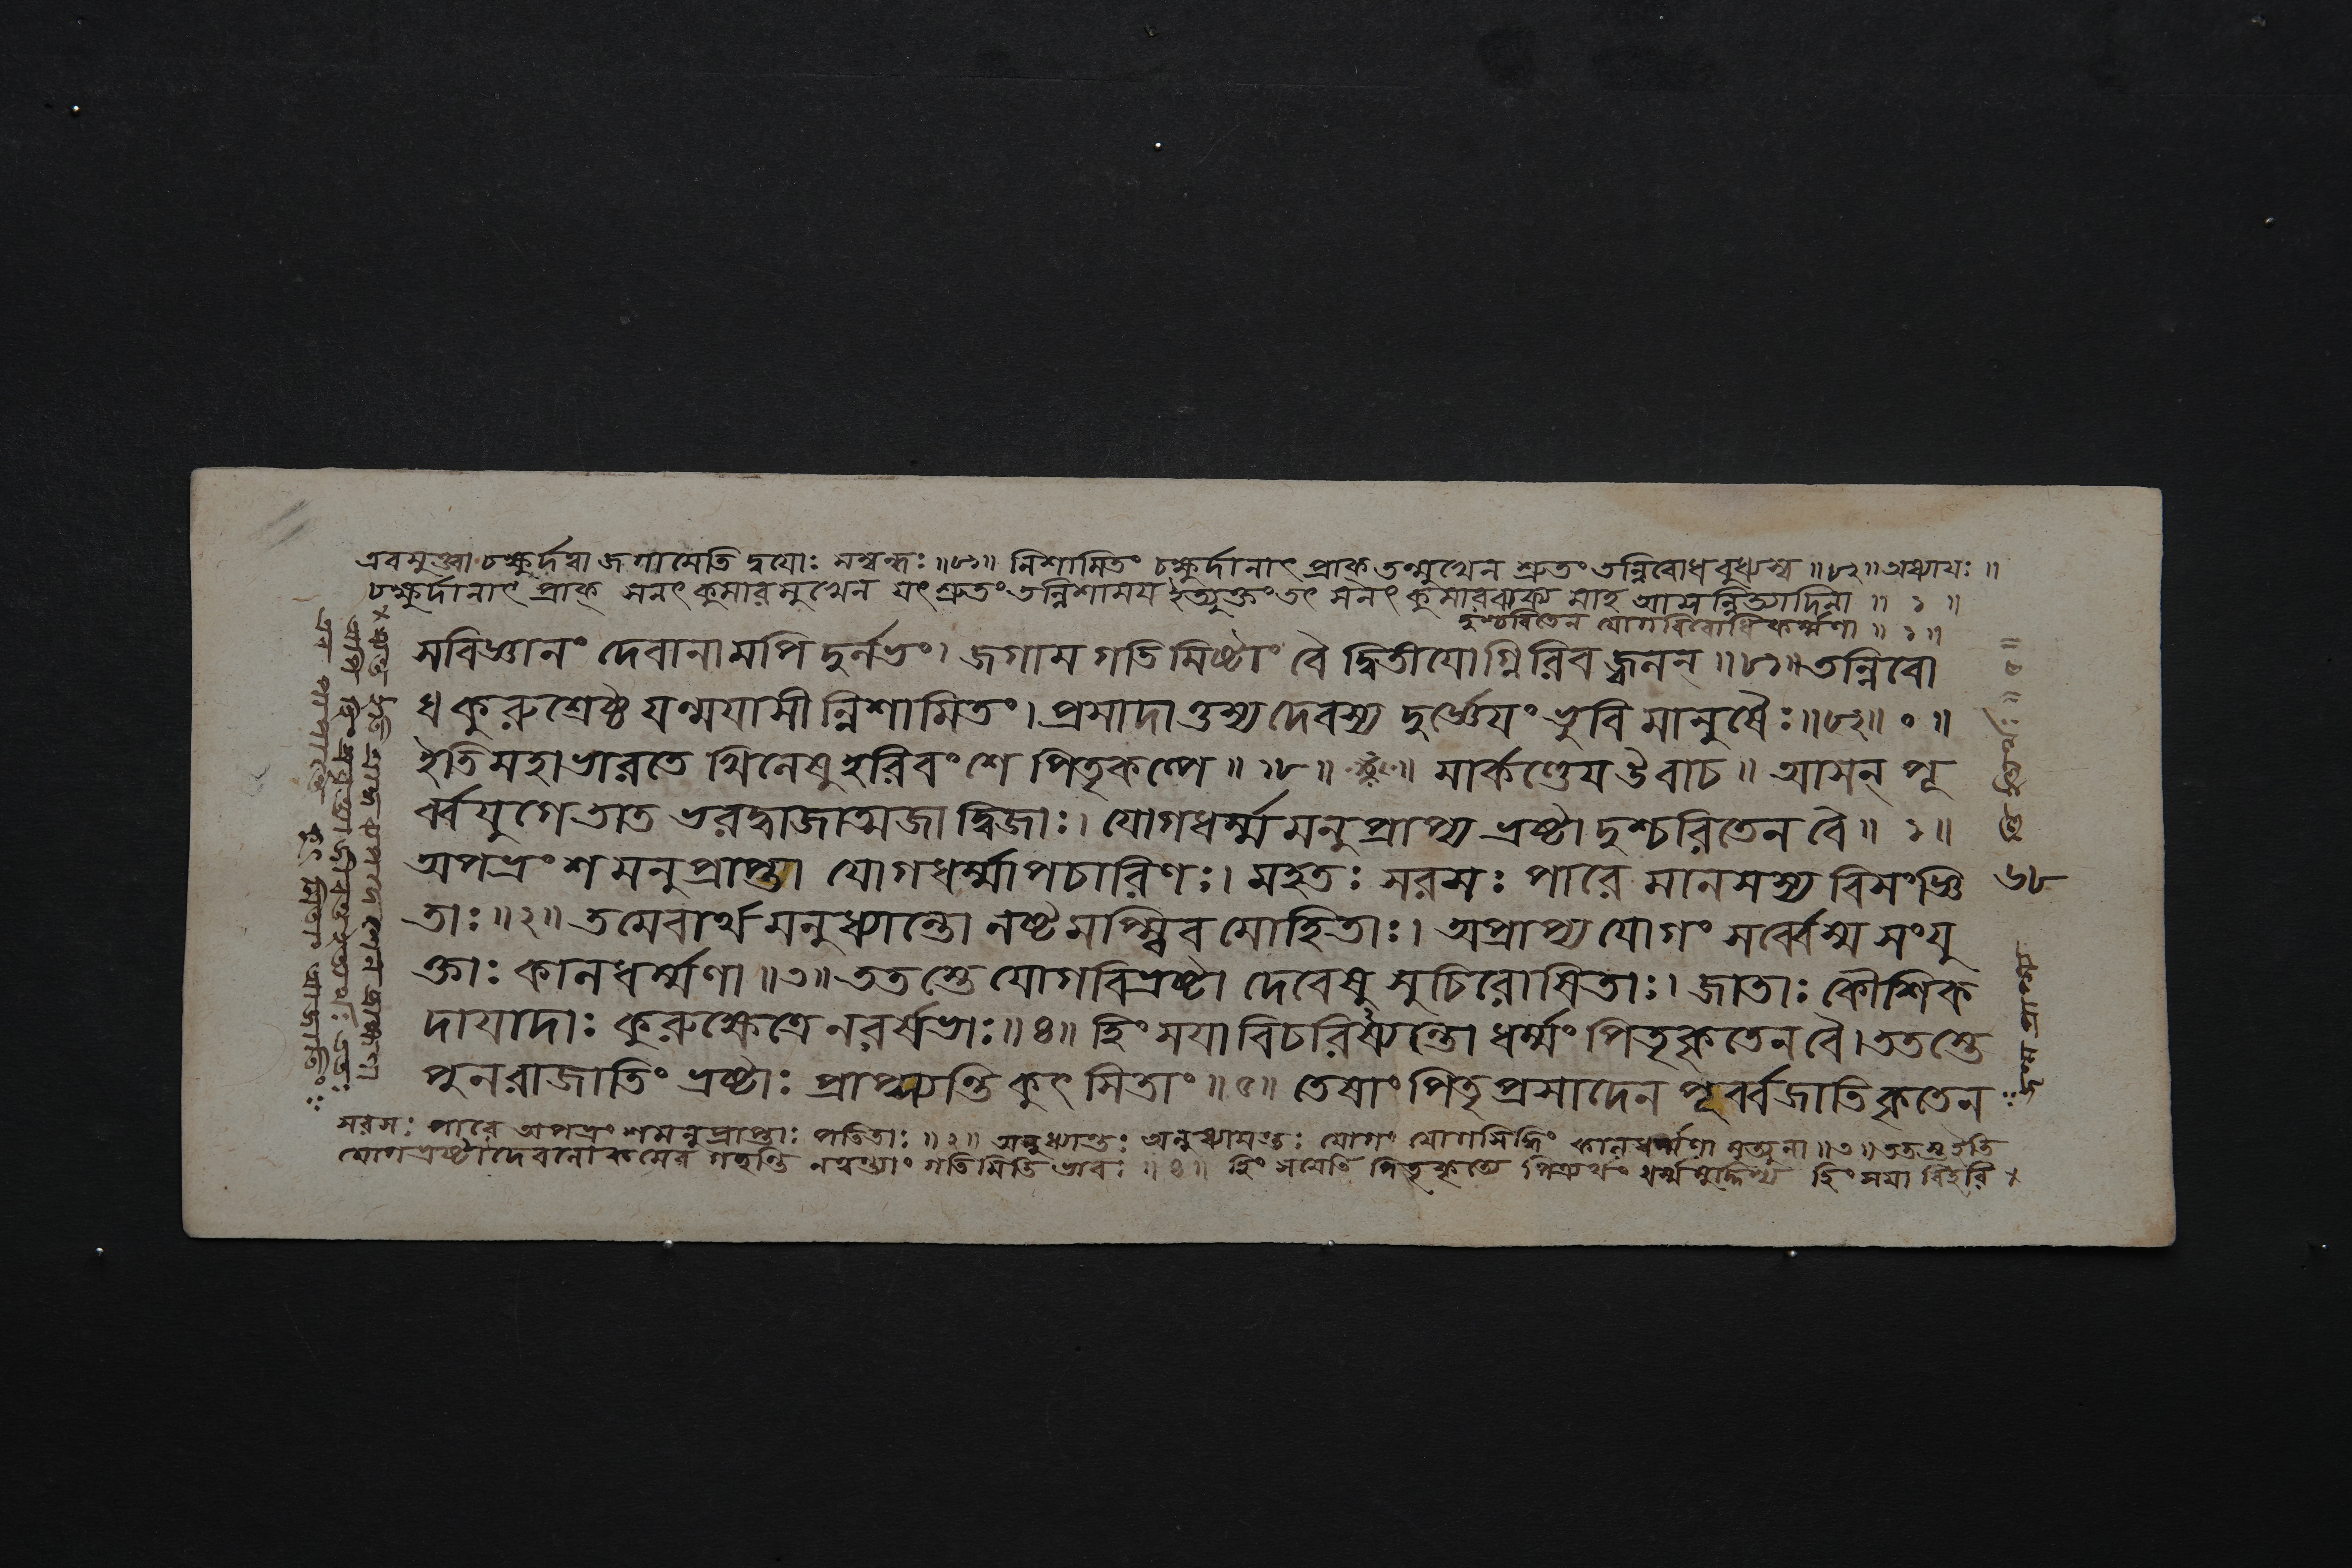 এবমুক্ত্বা চক্ষুর্দত্বা জগামেতি দ্বয়োঃ সম্বন্ধঃ ॥৮১॥ নিশামিতং চক্ষুর্দানাৎ প্রাক্ তন্মুখেন শ্রুতং তন্নিবোধ বুধ্যস্ব ॥৮২॥ অধ্যায়ঃ ॥
চক্ষুর্দানাৎ প্রাক্ সনৎকুমারমুখেন যৎ শ্রুতং তন্নিশাময় ইত্যুক্তং তৎ সনৎকুমারবাক্য মাহ আসন্নিত্যাদিনা ॥ ১ ॥
দুশ্চরিতেন যোগবিরোধিকর্ম্মণা ॥ ১॥
সবিজ্ঞানং দেবানামপি দুর্লভং। জগাম গতিমিষ্টাং বৈ দ্বিতীযোগ্নিরিব জ্বলন্ ॥৮১॥ তন্নিবো
ধ কুরুশ্রেষ্ঠ যন্ময়াসীন্নিশামিতং। প্রসাদাত্তস্য দেবস্য দুর্জ্ঞেযং ভুবি মানুষৈঃ ॥৮২॥ ০ ॥
ইতি মহাভারতে খিলেষু হরিবংশে পিতৃকল্পে ॥ ১৮ ॥ মার্কণ্ডেয উবাচ ॥ আসন্ পূ
র্ব্বযুগে তাত ভরদ্বাজাত্মজা দ্বিজাঃ। যোগধর্ম্মমনুপ্রাপ্য ভ্রষ্টা দুশ্চরিতেন বৈ ॥ ১॥
অপভ্রংশমনুপ্রাপ্তা যোগধর্ম্মাপচারিণঃ। মহতঃ সরসঃ পারে মানসস্য বিসংজ্ঞি
তাঃ ॥২॥ তমেবার্থমনুধ্যান্তো নষ্টমপ্স্বিব মোহিতাঃ। অপ্রাপ্য যোগং সর্ব্বে স্ম সংযু
ক্তাঃ কালধর্ম্মণা ॥৩॥ ততস্তে যোগবিভ্রষ্টা দেবেষু সুচিরোষিতাঃ। জাতাঃ কৌশিক
দাযাদাঃ কুরুক্ষেত্রে নরর্ষভাঃ ॥৪॥ হিংসযা বিচরিষ্যন্তো ধর্ম্মং পিতৃকৃতেন বৈ। ততস্তে
পুনরাজাতিং ভ্রষ্টাঃ প্রাপ্স্যন্তি কুৎসিতাং ॥৫॥ তেষাং পিতৃপ্রসাদেন পূর্ব্বজাতিকৃতেন
সরসঃ পারে অপভ্রংশমনুপ্রাপ্তাঃ পতিতাঃ ॥২॥ অনুধ্যান্তঃ অনুধ্যায়ন্তঃ যোগং যোগসিদ্ধিং কালধর্ম্মণা মৃত্যুনা ॥৩॥ ততস্ত ইতি
যোগভ্রষ্টা দেবলোকমেব গচ্ছন্তি গতিমিতি ভাবঃ ॥৪॥ হিংসয়েতি পিতৃকৃত্যে পিত্রর্থং ধর্ম্মমুদ্দিশ্য হিংসয়া বিহরি ×
৬৮